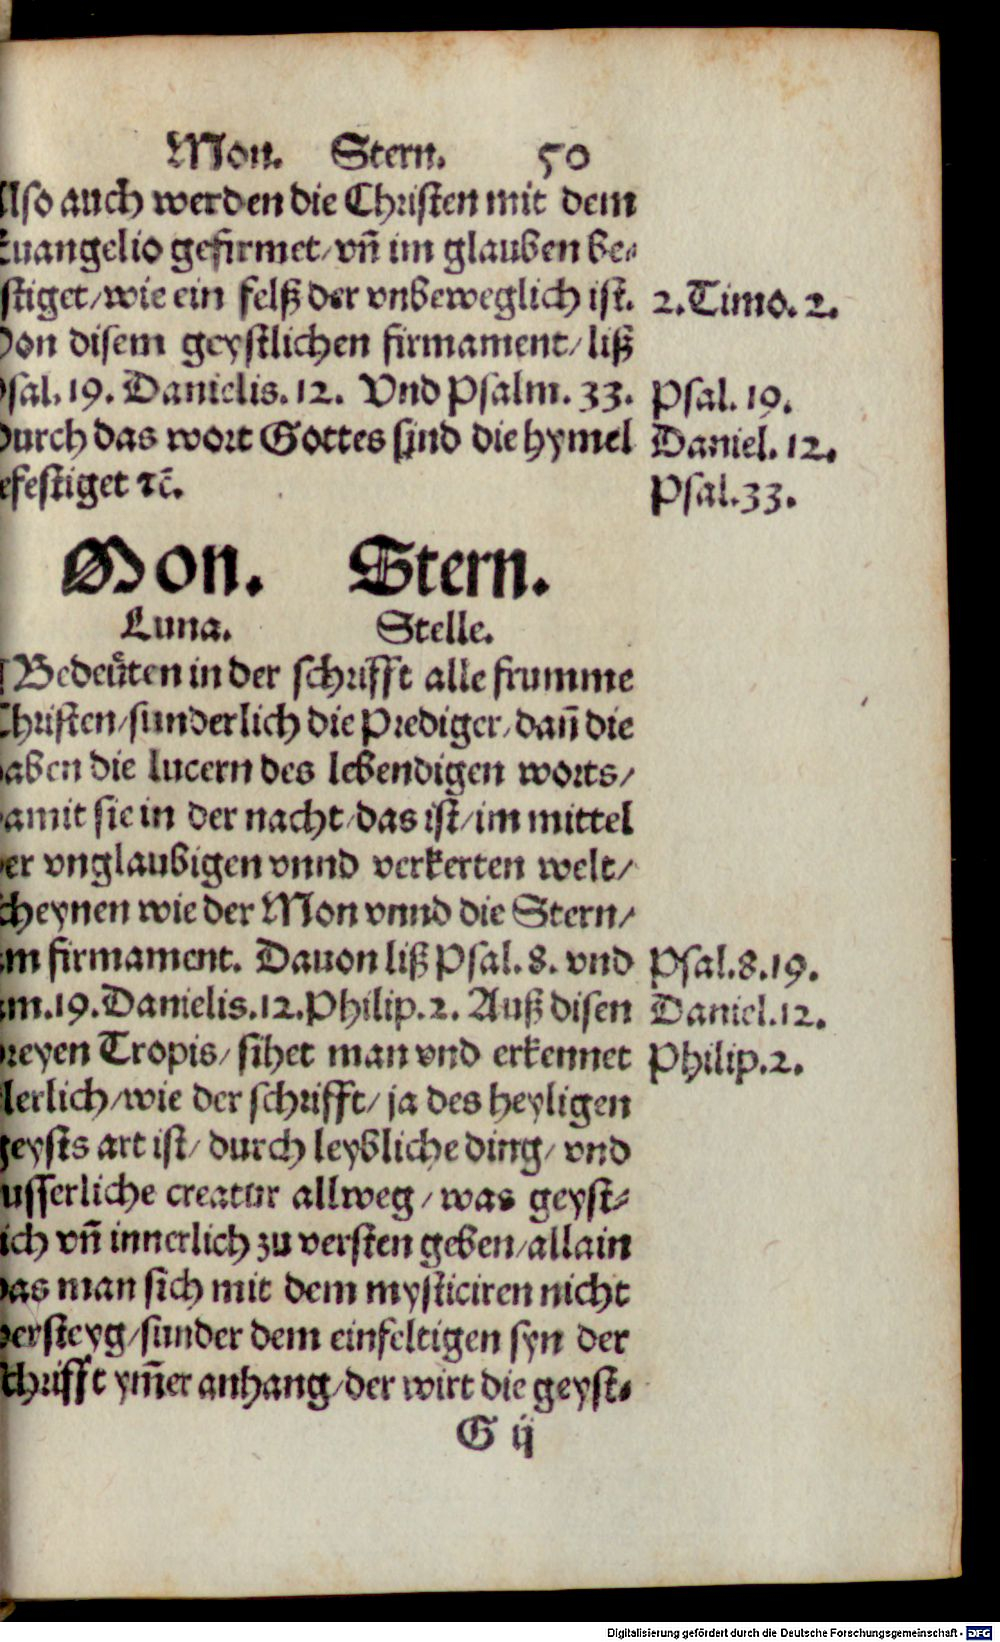 Mon. Stern. 50
Also auch werden die Christen mit dem
Euangelio gefirmet/ vñ im glauben be⸗
stiget/ wie ein felß der vnbeweglich ist. 2. Timo. 2.
Von disem geystlichen firmament/ liß
Psal. 19. Danielis. 12. Vnd Psalm. 33. Psal. 19.
Durch das wort Gottes sind die hymel Daniel. 12.
efestiget ꝛc̃. Psal. 33.
Mon. Stern.
Luna. Stelle.
Bedeüten in der schrifft alle frumme
Christen/ sunderlich die Prediger/ dañ die
aben die lucern des lebendigen worts/
amit sie in der nacht/ das ist/ im mittel
er vnglaubigen vnnd verkerten welt/
cheynen wie der Mon vnnd die Stern/
m firmament. Dauon liß Psal. 8. vnd Psal. 8. 19.
m. 19. Danielis. 12. Philip. 2. Auß disen Daniel. 12.
reyen Tropis/ sihet man vnd erkennet Philip. 2.
lerlich/ wie der schrifft/ ja des heyligen
geysts art ist/ durch leybliche ding/ vnd
usserliche creatur allweg/ was geyst⸗
ich vñ innerlich zu versten geben/ allain
das man sich mit dem mysticiren nicht
versteyg/ sunder dem einfeltigen syn der
schrifft ym̃er anhang/ der wirt die geyst⸗
G ij
Digitalisierung gefördert durch die Deutsche Forschungsgemeinschaft - DFG